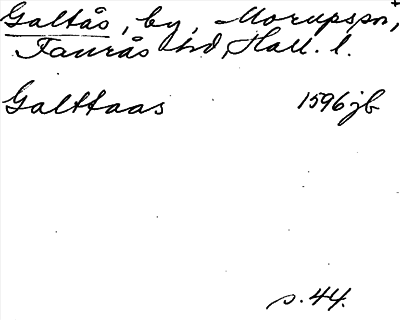 Galtås, by, Morups sn,
Faurås hd, Hall. l.
Galttaas 1596 jb
s. 44.